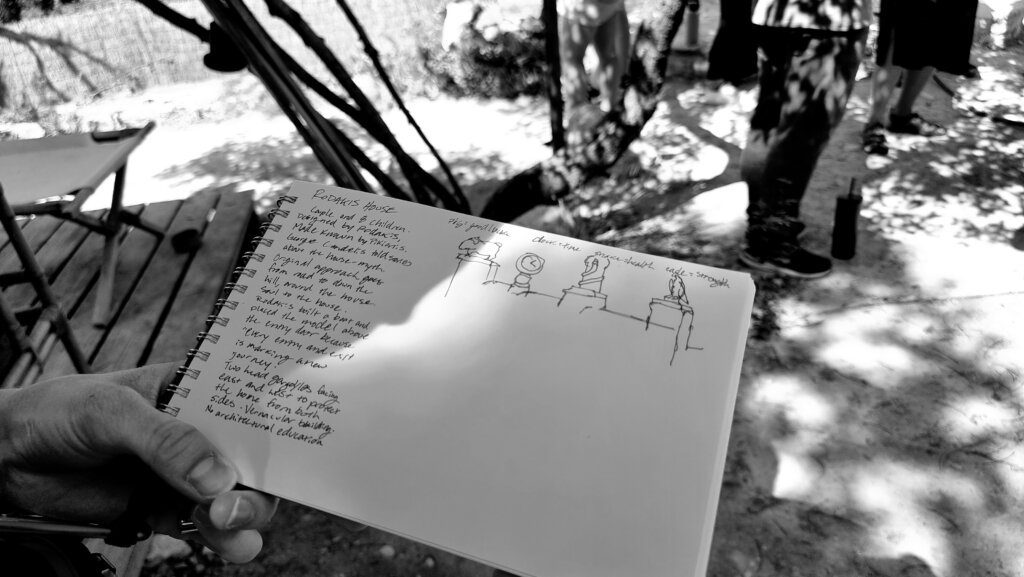 RODAKIS HOUSE
Couple and 8 children.
Designed by Rodakis,
Made known by Pikionis,
George Candilis told stories
about the house-myth
Original approach goes
from road to down the
hill, around the house.
Soul to the house.
Rodakis built a boat and
placed the model above
the entry door because
"every entry and exit
is marking a new
journey."
Two head gargoyles facing
east and west to protect
the home from both
sides. Vernacular building.
No architectural education
pig: good luck
clock: time
snake: health
eagle: strength